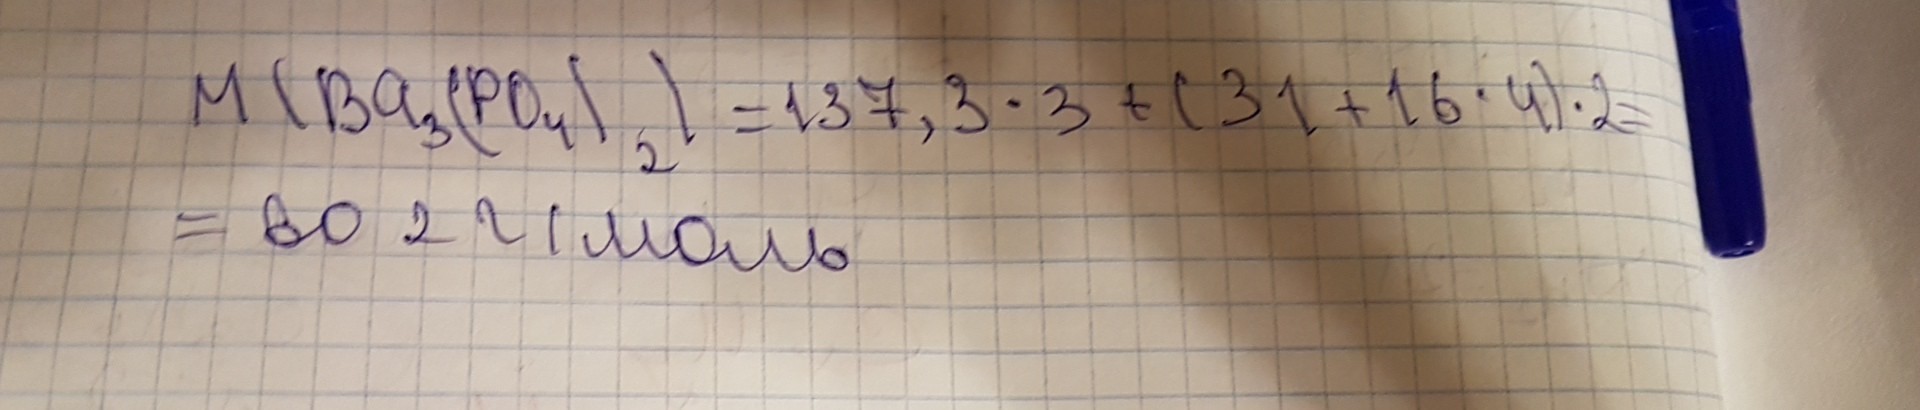 M(Ba₃(PO₄)₂) = 137,3 · 3 + (31 + 16 · 4) · 2 =
= 602 г/моль